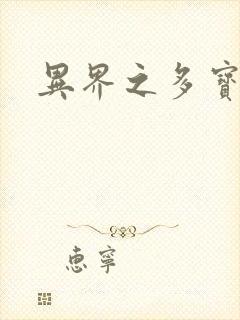 異界之多寶
惠寧